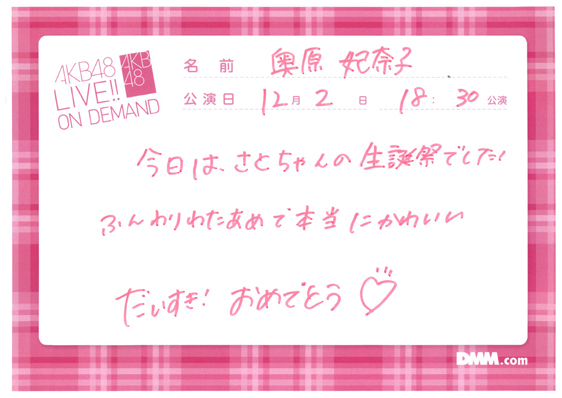 AKB48
LIVE!!
ON DEMAND
AKB
48
名前 奥原 妃奈子
公演日 12月 2日 18:30公演
今日は、さとちゃんの生誕祭でした!
ふんわりわたあめで本当にかわいい
だいすき! おめでとう♡
DMM.com